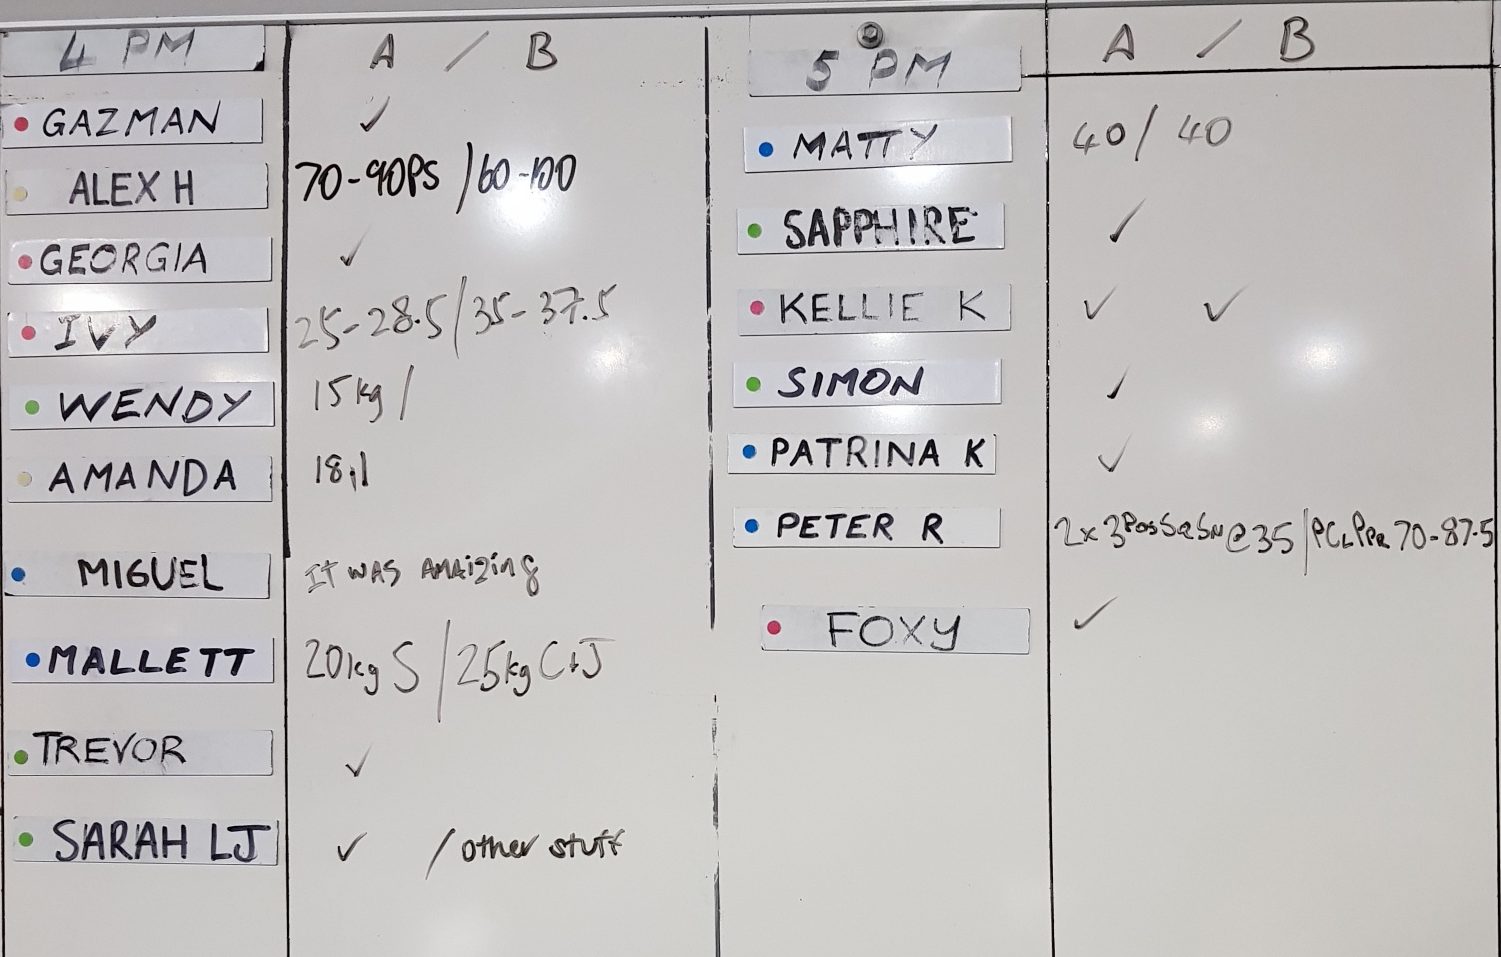 4 PM A / B
GAZMAN ✓
ALEX H 70-90PS / 60-100
GEORGIA ✓
IVY 25-28.5 / 35-37.5
WENDY 15kg /
AMANDA 18,1
MIGUEL IT WAS AMAIZING
MALLETT 20kg S / 25kg C+J
TREVOR ✓
SARAH LJ ✓ / other stuff
5 PM A / B
MATTY 40 / 40
SAPPHIRE ✓
KELLIE K ✓ ✓
SIMON ✓
PATRINA K ✓
PETER R 2x3PosSqSn@35 / 70-87.5
FOXY ✓